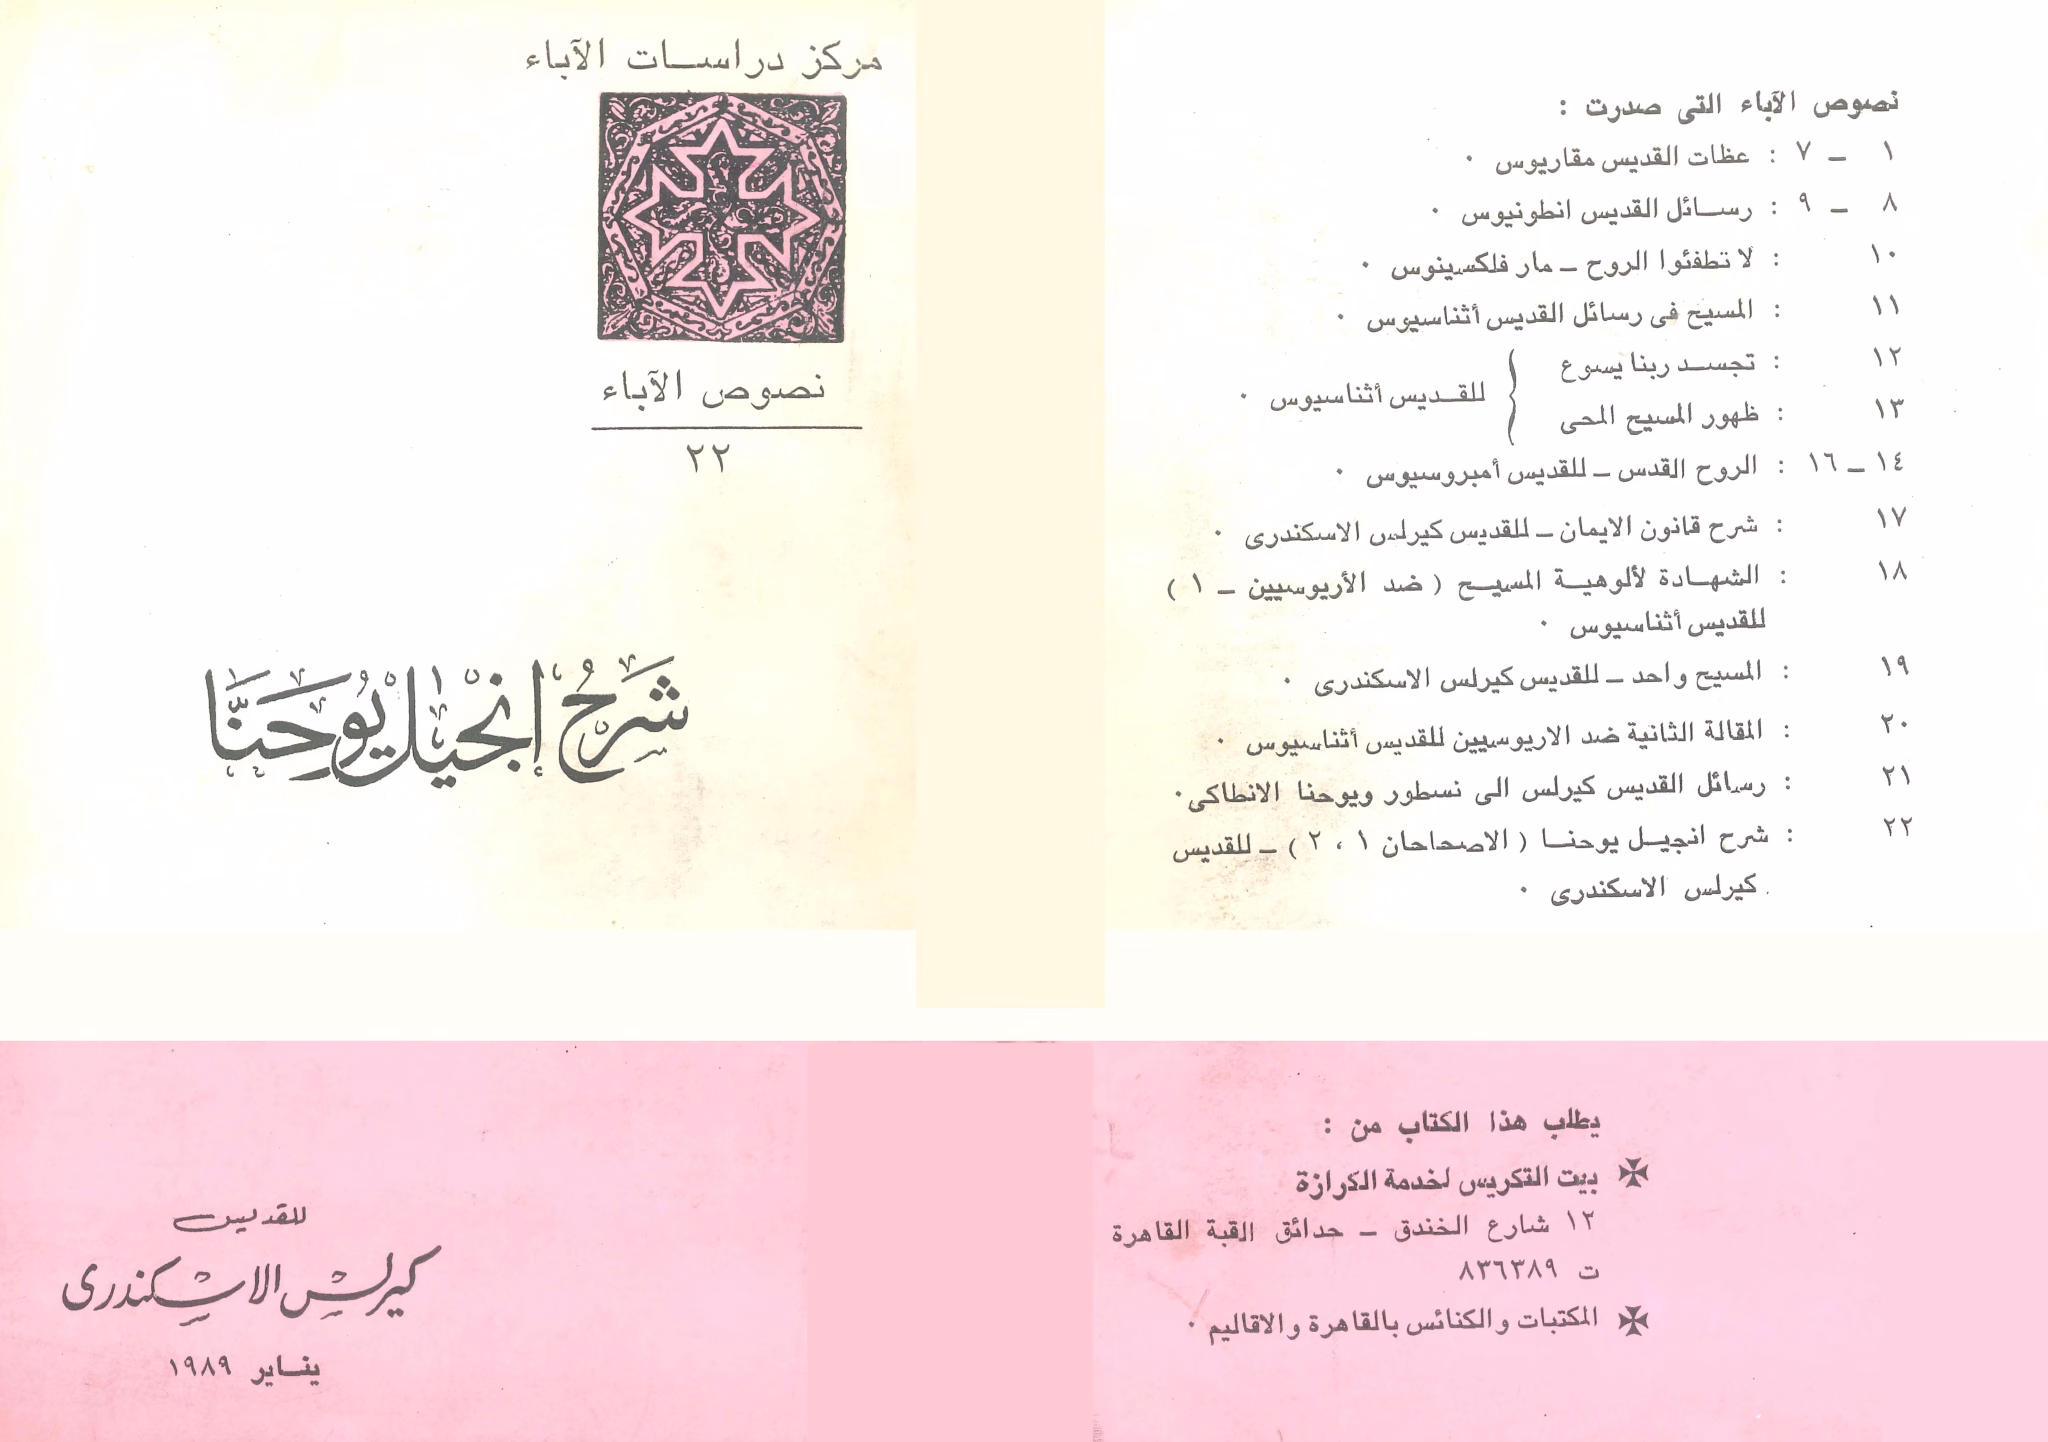 مركز دراسات الآباء
نصوص الآباء
٢٢
شَرحُ إنجيل يُوحَنَّا
للقديس
كيرلس الاسكندرى
يناير ١٩٨٩
نصوص الآباء التى صدرت :
١ – ٧ : عظات القديس مقاريوس ٠
٨ – ٩ : رسائل القديس انطونيوس ٠
١٠ : لا تطفئوا الروح – مار فلكسينوس ٠
١١ : المسيح فى رسائل القديس أثناسيوس ٠
١٢ : تجسد ربنا يسوع
١٣ : ظهور المسيح المحى
للقديس أثناسيوس ٠
١٤ – ١٦ : الروح القدس – للقديس أمبروسيوس ٠
١٧ : شرح قانون الايمان – للقديس كيرلس الاسكندرى ٠
١٨ : الشهادة لألوهية المسيح ( ضد الأريوسيين – ١ )
للقديس أثناسيوس ٠
١٩ : المسيح واحد – للقديس كيرلس الاسكندرى ٠
٢٠ : المقالة الثانية ضد الاريوسيين للقديس أثناسيوس ٠
٢١ : رسائل القديس كيرلس الى نسطور ويوحنا الانطاكى ٠
٢٢ : شرح انجيل يوحنا ( الاصحاحان ١ ، ٢ ) – للقديس
كيرلس الاسكندرى ٠
يطلب هذا الكتاب من :
بيت التكريس لخدمة الكرازة
١٢ شارع الخندق – حدائق القبة القاهرة
ت ٨٣٦٣٨٩
المكتبات والكنائس بالقاهرة والاقاليم ٠